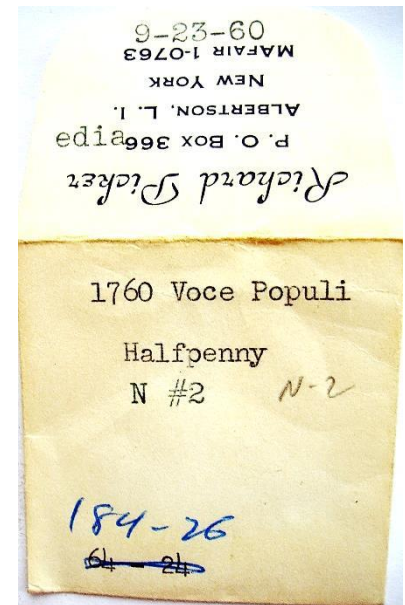 9-23-60
MAFAIR 1-0763
NEW YORK
ALBERTSON, L. I.
P. O. BOX 366
edia
Richard Picker
1760 Voce Populi
Halfpenny
N #2 N-2
184-26
64 - 24